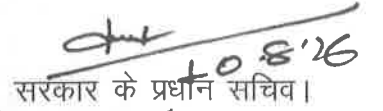 10.8'26
सरकार के प्रधान सचिव।